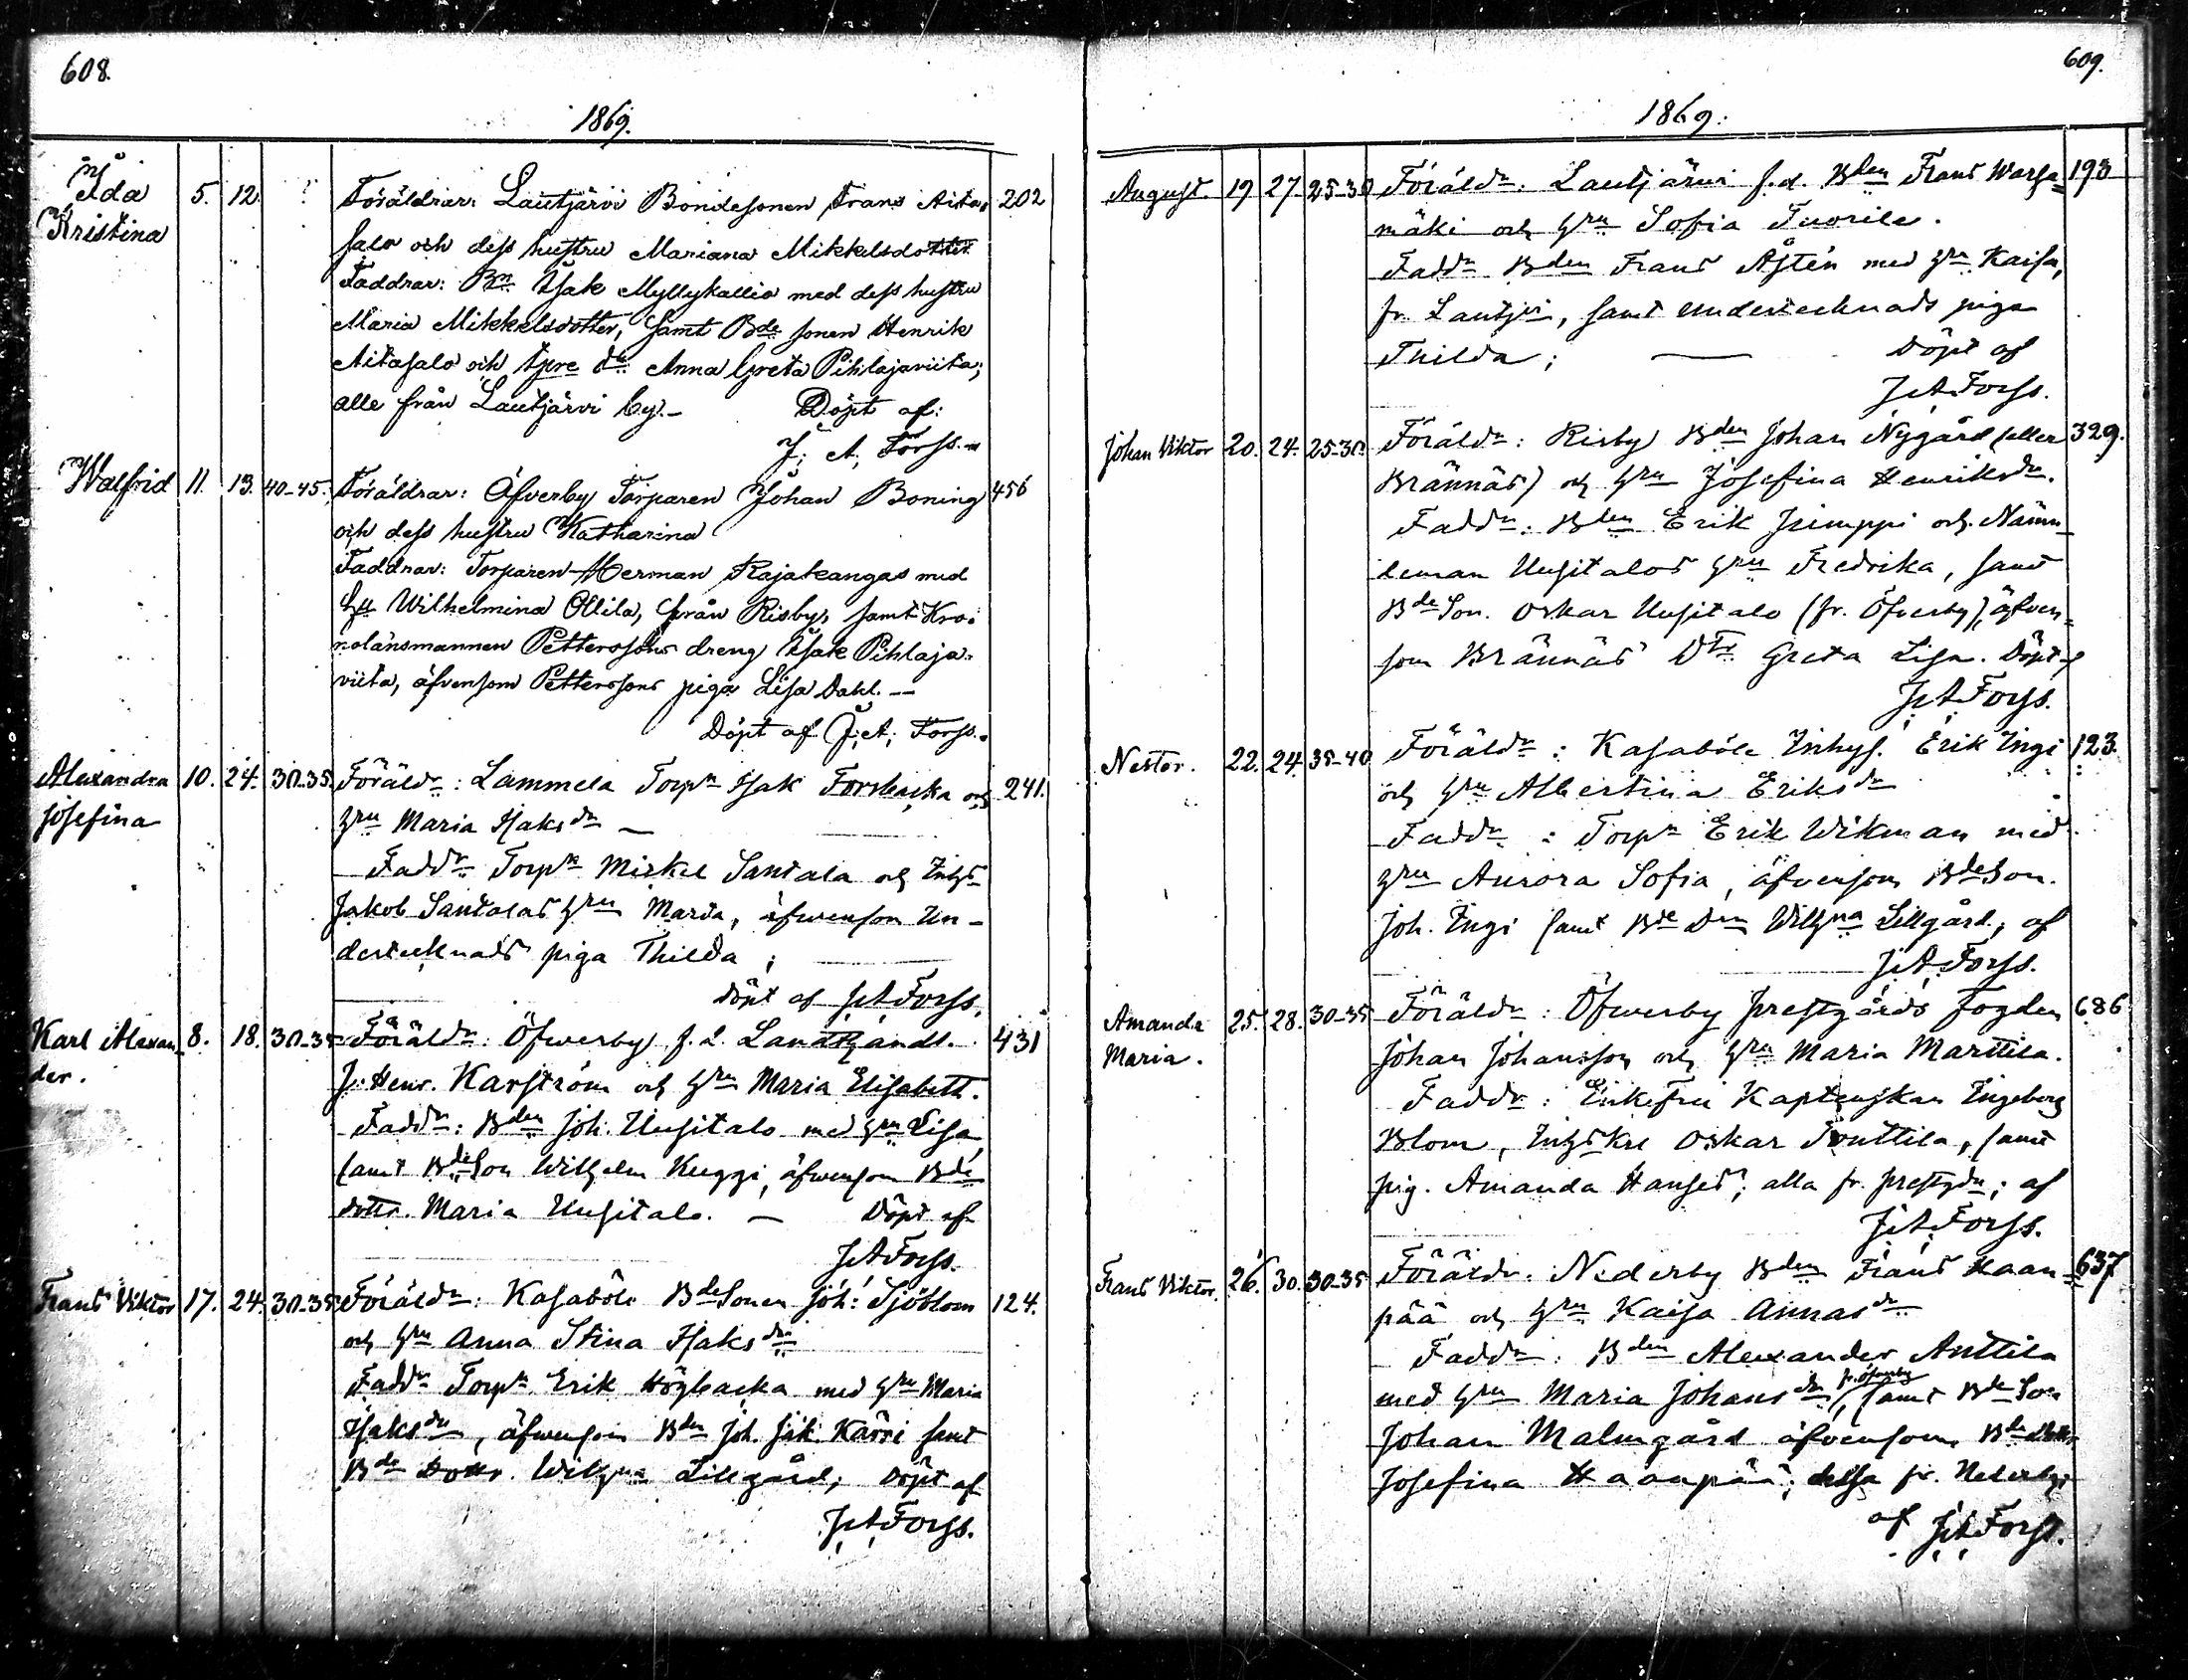 608.
1869.
Ida Kristina 5. 12. ? Föräldrar: Lautjärvi Bondesonen Frans Aita- 202
salo och dess hustru Mariana Mikkelsdotter
Faddrar: Bn Isak Myllykallio med dess hustru
Maria Mikkelsdotter, samt Bde sonen Henrik
Aitasalo och tpre dr Anna Greta Pihlajaviita;
alle från Lautjärvi by.- Döpt af:
J. A. Forss.
Walfrid 11. 13. 40-45. Föräldrar: Öfverby Torparen Johan Boning 456
och dess hustru Katharina
Faddrar: Torparen Herman Rajakangas med
hu Wilhelmina Ollila, från Risby, samt Kro-
nolänsmannen Petterssons dreng Isak Pihlaja-
viita, äfvensom Petterssons piga Lisa Dahl. —
Döpt af J. A. Forss.
Alexandra Josefina 10. 24. 30-35. Föräldr: Lammela Torpn Isak Forsbacka och 241.
hru Maria Isaksdr —
Faddr Torpn Mickel Santala och Inhs
Jakob Santalas hru Maria, äfvensom Un-
dertecknads piga Thilda ;
Döpt af JAForss.
Karl Alexan- der. 8. 18. 30-35 Föräldr: Öfverby f.d. Landthandl. 431
J: Henr. Karström och hru Maria Elisabeth.
Faddr: Bden Joh. Uusitalo med hru Lisa
samt BdeSon Wilhelm Kuggi, äfvensom Bde
dottr. Maria Uusitalo. — Döpt af
JAForss.
Frans Viktor 17. 24. 30-35 Föräldr: Kasaböle BdeSonen Joh: Sjöblom 124.
och hru Anna Stina Isaksdr
Faddr Torpn Erik Högbacka med hru Maria
Isaksdr, äfvensom Bden Joh. Jak. Karri samt
Bde Dottr. Wilhna Lillgård; Döpt af
JAForss.
609.
1869.
August. 19 27. 25-30 Föräldr: Lautjärvi f.d. Bden Frans Warsa- 193
mäki och hru Sofia Tuorila.
Faddr Bden Frans Åstén med hru Kaisa,
fr. Lautjvi, samt undertecknads piga
Thilda; — Döpt af
JAForss.
Johan Viktor 20. 24. 25-30. Föräldr: Risby Bden Johan Nygård (eller 329.
Brännäs) och hru Josefina Henriksdr.
Faddr: Bden Erik och Nämn-
deman Uusitalos hru Fredrika, samt
BdeSon. Oskar Uusitalo (fr. Öfverby), äfven-
som Brännäs Dtr Greta Lisa. Döpt af
JAForss.
Nestor. 22. 24. 35-40 Föräldr: Kasaböle Inhys. Erik Ingi 123.
och hru Albertina Eriksdr
Faddr: Torpn Erik Wikman med
hru Aurora Sofia, äfvensom BdeSon.
Joh. Ingi samt Bde Drn Wilhna Lillgård; af
JAForss.
Amanda Maria. 25. 28. 30-35 Föräldr: Öfverby prestgårds fogden 686
Johan Johansson och hru Maria Marttila.
Faddr: Enkefru Kaptenskan Ingeborg
Blom, Oskar Penttila, samt
pig. Amanda Hansdr; alla fr. prestgdn; af
JAForss.
Frans Viktor. 26. 30. 30-35 Föräldr: Nederby Bden Frans Haan- 637
pää och hru Kaisa Annasdr
Faddr: Bden Alexander Anttila
med hru Maria Johansdr, fr. Öfverby samt BdeSon
Johan Malmgård äfvensom Bde Dottr
Josefina Haanpää; dessa fr. Nederby;
af JAForss.